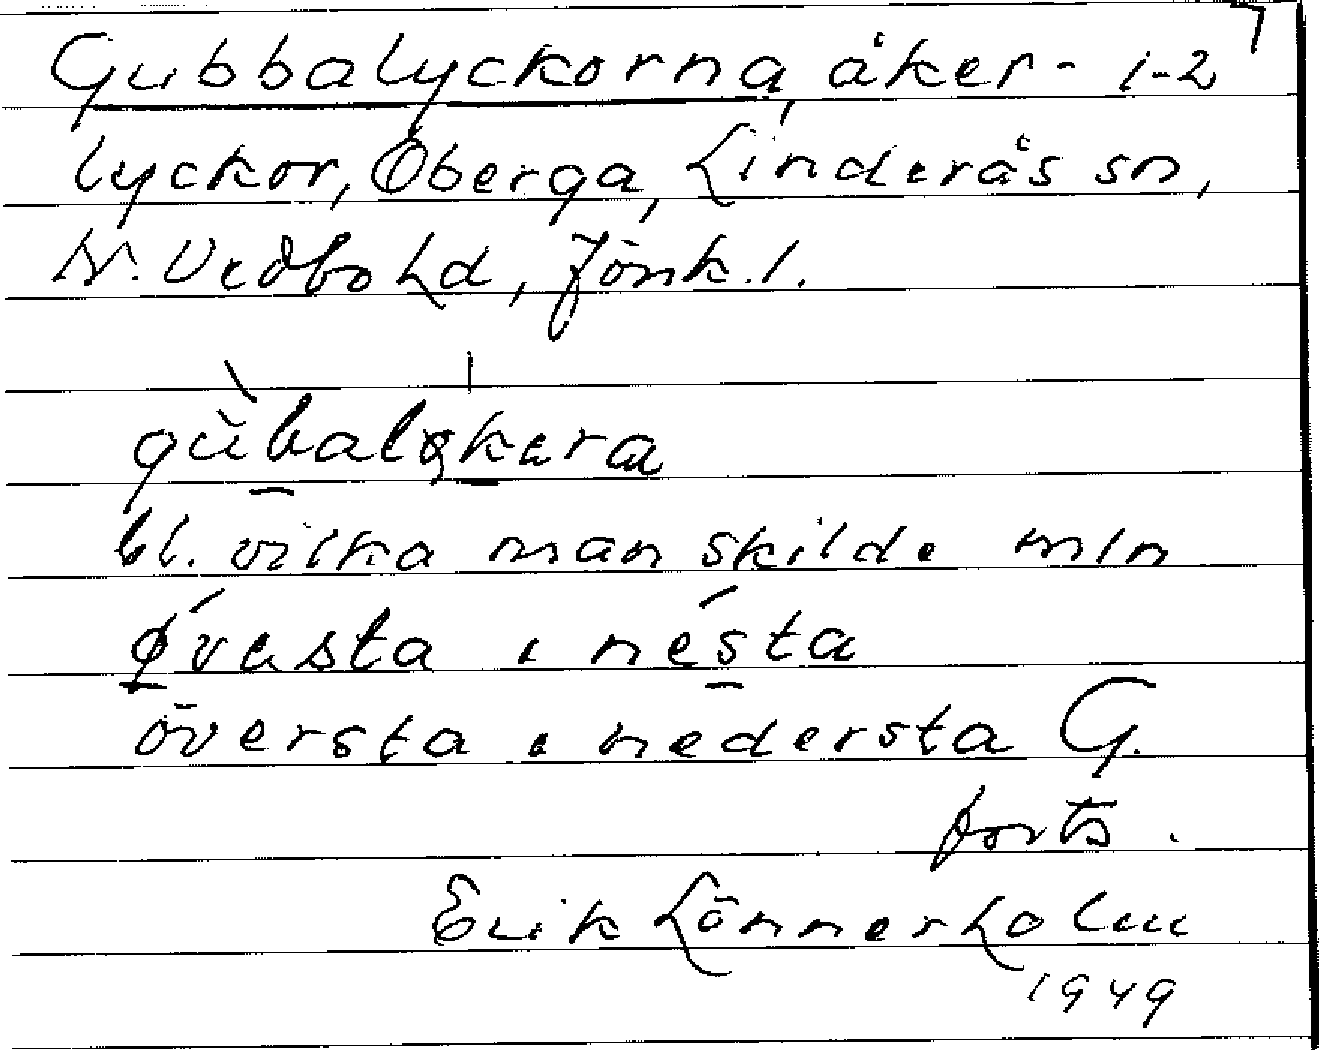 Gubbalyckorna, åker - 1-2
lyckor, Öberga, Linderås sn,
N. Vedbo hd, Jönk. l.
gùbaløkera
bl. vilka man skilde mln
øvesta o nésta
översta o nedersta G.
forts.
Erik Lönnerholm
1949